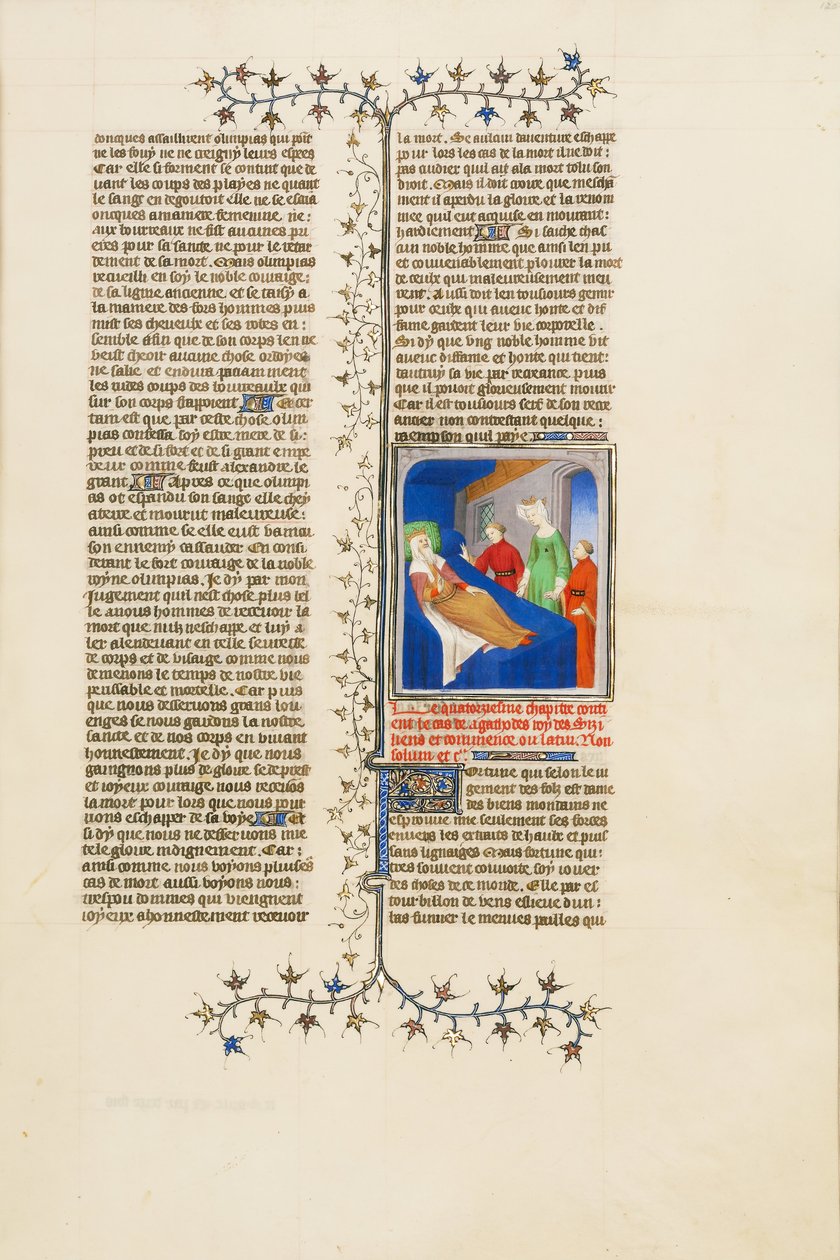 doncques assaillirent olimpias qui poit
ne les fouy ne ne creigny leurs espees
Car elle si forment se contint que de
uant les coups des playes ne quant
le sang en degoutoit elle ne se escria
oncques a maniere femenine ne :
aux bourreaux ne fist aucunes pri
eres pour sa sante ne pour le retar
dement de sa mort . Mais olimpias
recueilli en soy le noble couraige :
de sa ligne ancienne et se taisy a
la maniere des fors hommes puis
mist ses cheueulx et ses robes en :
semble affin que de son corps len ne
veist cheoir aucune chose ordoyee
ne salie et endura paciamment
les rudes coups des bourreaulx qui
sur son corps frappoient Et cer
tain est que par ceste chose olim
pias confessa soy estre mere de si :
preu et de si fort et de si grant empe
reur comme feust alexandre le
grant Apres ce que olimpi
as ot espandu son sang elle chey
a terre et mourut maleureuse :
ainsi comme se elle eust vaincu
son ennemy cassander En consi
derant le fort couraige de la noble
royne olimpias . Je dy par mon
jugement quil nest chose plus bel
le a nous hommes de receuoir la
mort que nulz neschappe et luy a
ler alendeuant en telle seurete
de corps et de visaige comme nous
demenons le temps de nostre vie
perissable et mortelle . Car puis
que nous desseruons grans lou
enges se nous gardons la nostre
sante et de nos corps en viuant
honnestement . Je dy que nous
gaingnons plus de gloire se de prest
et ioyeux couraige nous receuons
la mort pour lors que nous pour
rions eschaper de sa voye Et
si dy que nous ne desseruons mie
tele gloire indignement . Car :
ainsi comme nous voyons pluiseurs
cas de mort aussi voyons nous :
trespou dommes qui viengnent
ioyeux a honnestement receuoir
la mort . Se aulcun dauenture eschappe
pour lors les cas de la mort il ne doit :
pas cuidier quil ait a la mort tolu son
droit . Mais il doit croire que mescha
ment il a perdu la gloire et la renom
mee quil eut acquise en mourant :
hardiement Si saiche chas
cun noble homme que ainsi len pu
et conuenablement plourer la mort
de ceulx qui maleureusement meu
rent . Aussi doit len tousiours gemir
pour ceulx qui auecc honte et dif
fame gardent leur vie corporelle .
Si dy que vng noble homme vit
auecc diffame et honte qui tient :
laultruy sa vie par recreance puis
que il pouoit glorieusement mourir
Car il est tousiours serf de son recre
ancier non contrestant quelque :
raempson quil paye
Le quatorziesme chapitre conti
ent le cas de agathodes roy des Sizi
liens et commence ou latin . Non
solum et c̃
Fortune qui selon le iu
gement des folz est dame
des biens mondains ne
espreuue mie seulement ses forces
enuers les extrais de hault et puis
sans lignaiges Mais fortune qui :
tres souuent conuoite soy iouer
des choses de ce monde . Elle par es
tourbillon de vens eslieue dun :
bas fumier le menues pailles qui